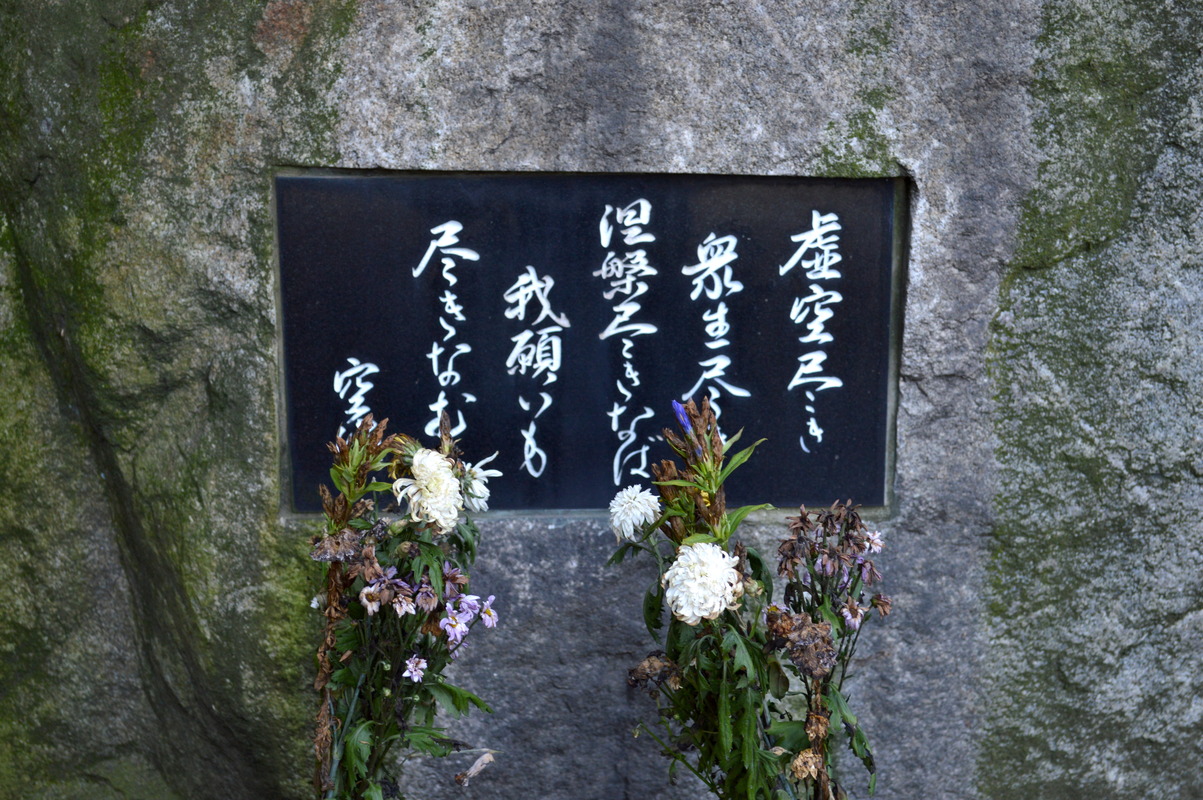 虚空尽き
衆生尽
涅槃尽きなば
我願いも
尽きなむ
空